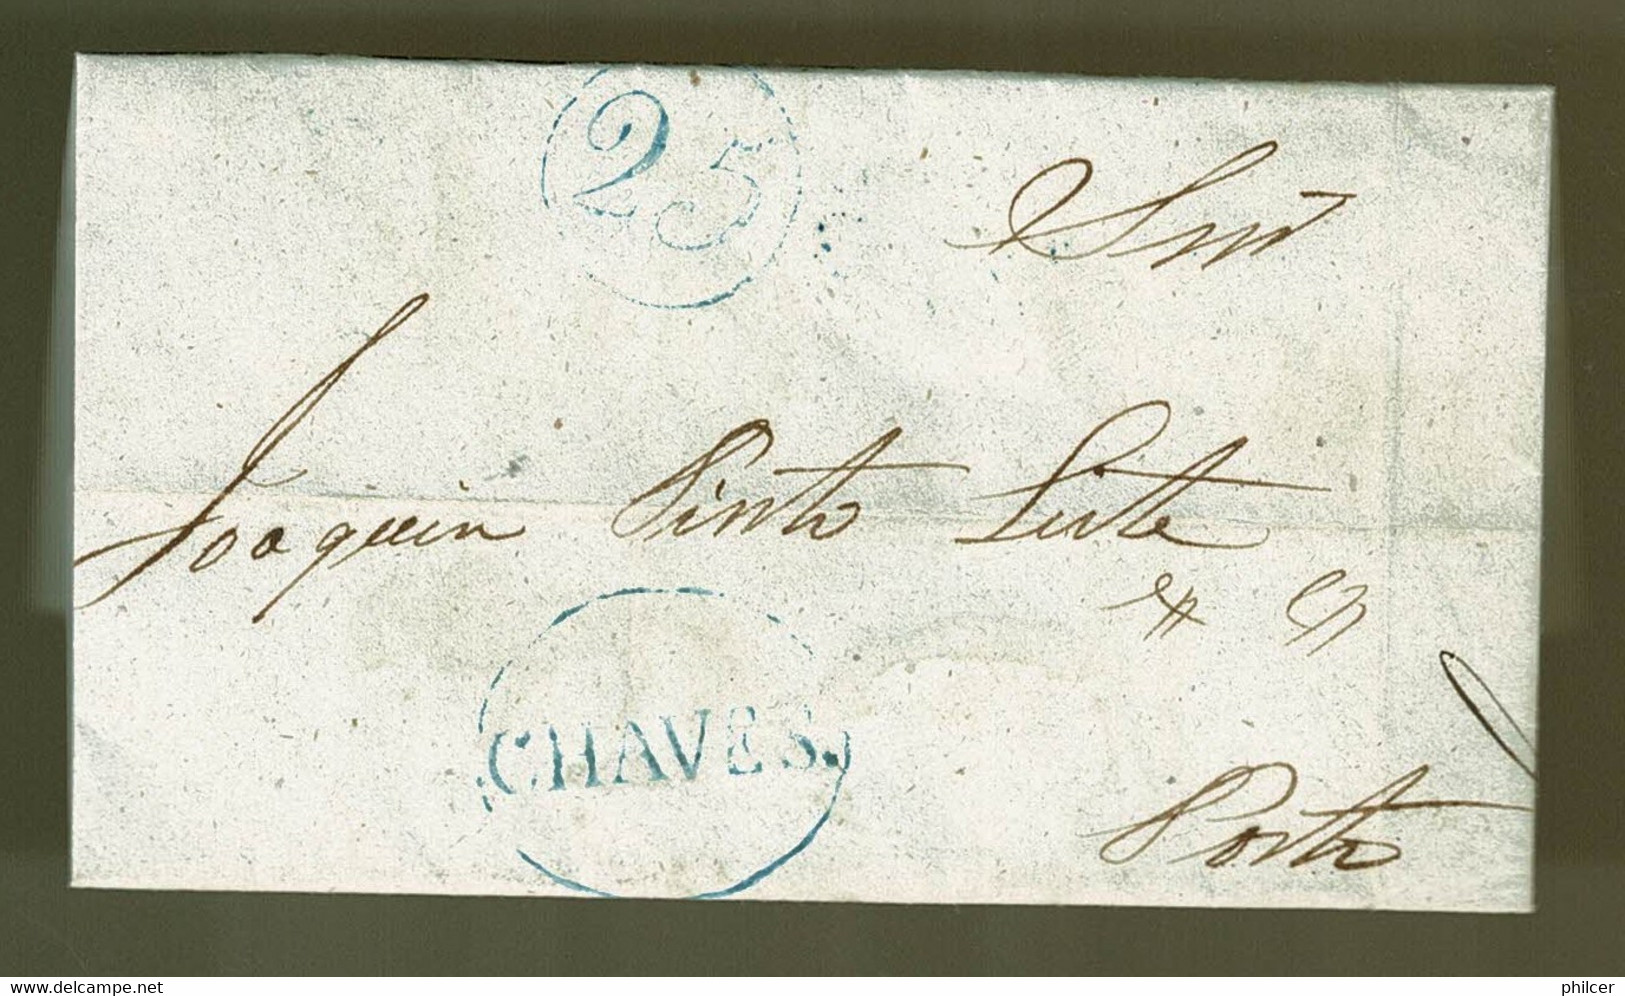 25
Snr
Joaquin Pinto Leite
CHAVES.
Porto
www.delcampe.net
philcer